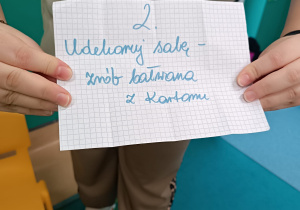 2.
Udekoruj salę -
zrób bałwana
z kartonu